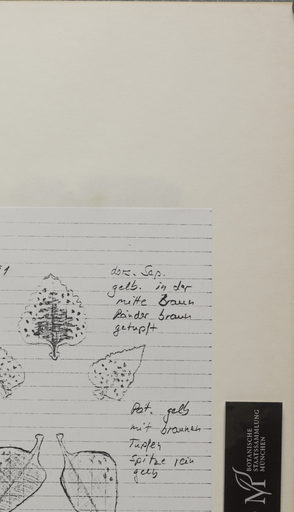 dors. Sep.
gelb. in der
mitte Braun
Ränder braun
getupft
Pet. gelb
mit braunen
Tupfen
Spitze rein
gelb
BOTANISCHE
STAATSSAMMLUNG
MÜNCHEN